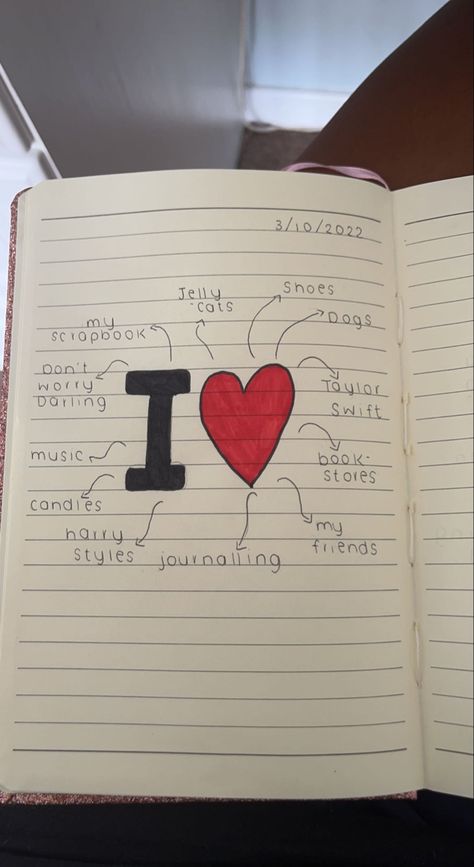 3/10/2022
Jelly
-cats
Shoes
Dogs
my
scrapbook
Don't
worry
Darling
Taylor
Swift
I
music
book-
stores
candles
harry
styles
journalling
my
friends